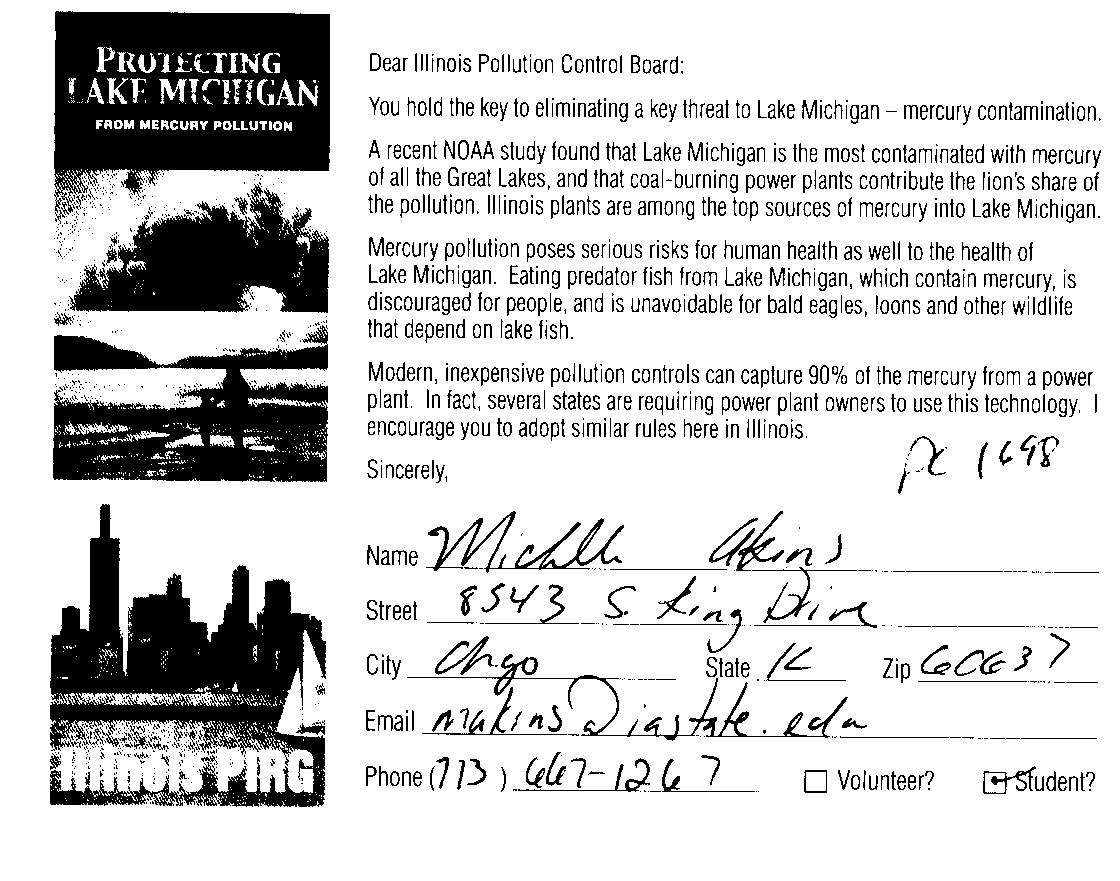 PROTECTING
LAKE MICHIGAN
FROM MERCURY POLLUTION
Illinois PIRG
Dear Illinois Pollution Control Board:
You hold the key to eliminating a key threat to Lake Michigan – mercury contamination.
A recent NOAA study found that Lake Michigan is the most contaminated with mercury
of all the Great Lakes, and that coal-burning power plants contribute the lion's share of
the pollution. Illinois plants are among the top sources of mercury into Lake Michigan.
Mercury pollution poses serious risks for human health as well to the health of
Lake Michigan. Eating predator fish from Lake Michigan, which contain mercury, is
discouraged for people, and is unavoidable for bald eagles, loons and other wildlife
that depend on lake fish.
Modern, inexpensive pollution controls can capture 90% of the mercury from a power
plant. In fact, several states are requiring power plant owners to use this technology. I
encourage you to adopt similar rules here in Illinois.
Sincerely,
PC 1698
Name Michelle Akins
Street 8543 S. King Drive
City Chgo State IL Zip 60637
Email makins@iastate.edu
Phone (773) 667-1267 Volunteer? Student?